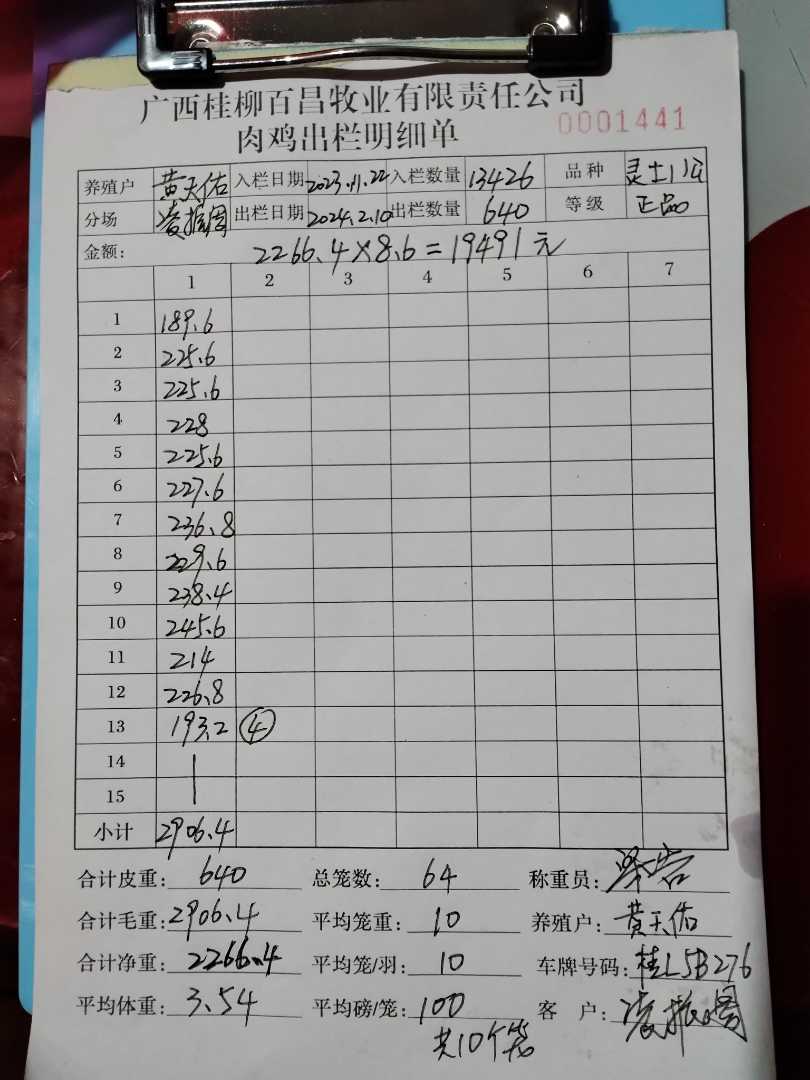 广西桂柳百昌牧业有限责任公司
肉鸡出栏明细单 0001441
养殖户 黄天佑 入栏日期 2023.11.22 入栏数量 13426 品种 灵土1
分场 凌振 出栏日期 2024.2.10 出栏数量 640 等级 正品
金额: 2266.4×8.6=19491元
1 2 3 4 5 6 7
1 189.6
2 225.6
3 225.6
4 228
5 225.6
6 227.6
7 236.8
8 229.6
9 238.4
10 245.6
11 214
12 226.8
13 193.2 ④
14
15
小计 2906.4
合计皮重: 640 总笼数: 64 称重员:
合计毛重: 2906.4 平均笼重: 10 养殖户: 黄天佑
合计净重: 2266.4 平均笼/羽: 10 车牌号码: 桂L5B276
平均体重: 3.54 平均磅/笼: 100 客 户: 凌振
共10个笼